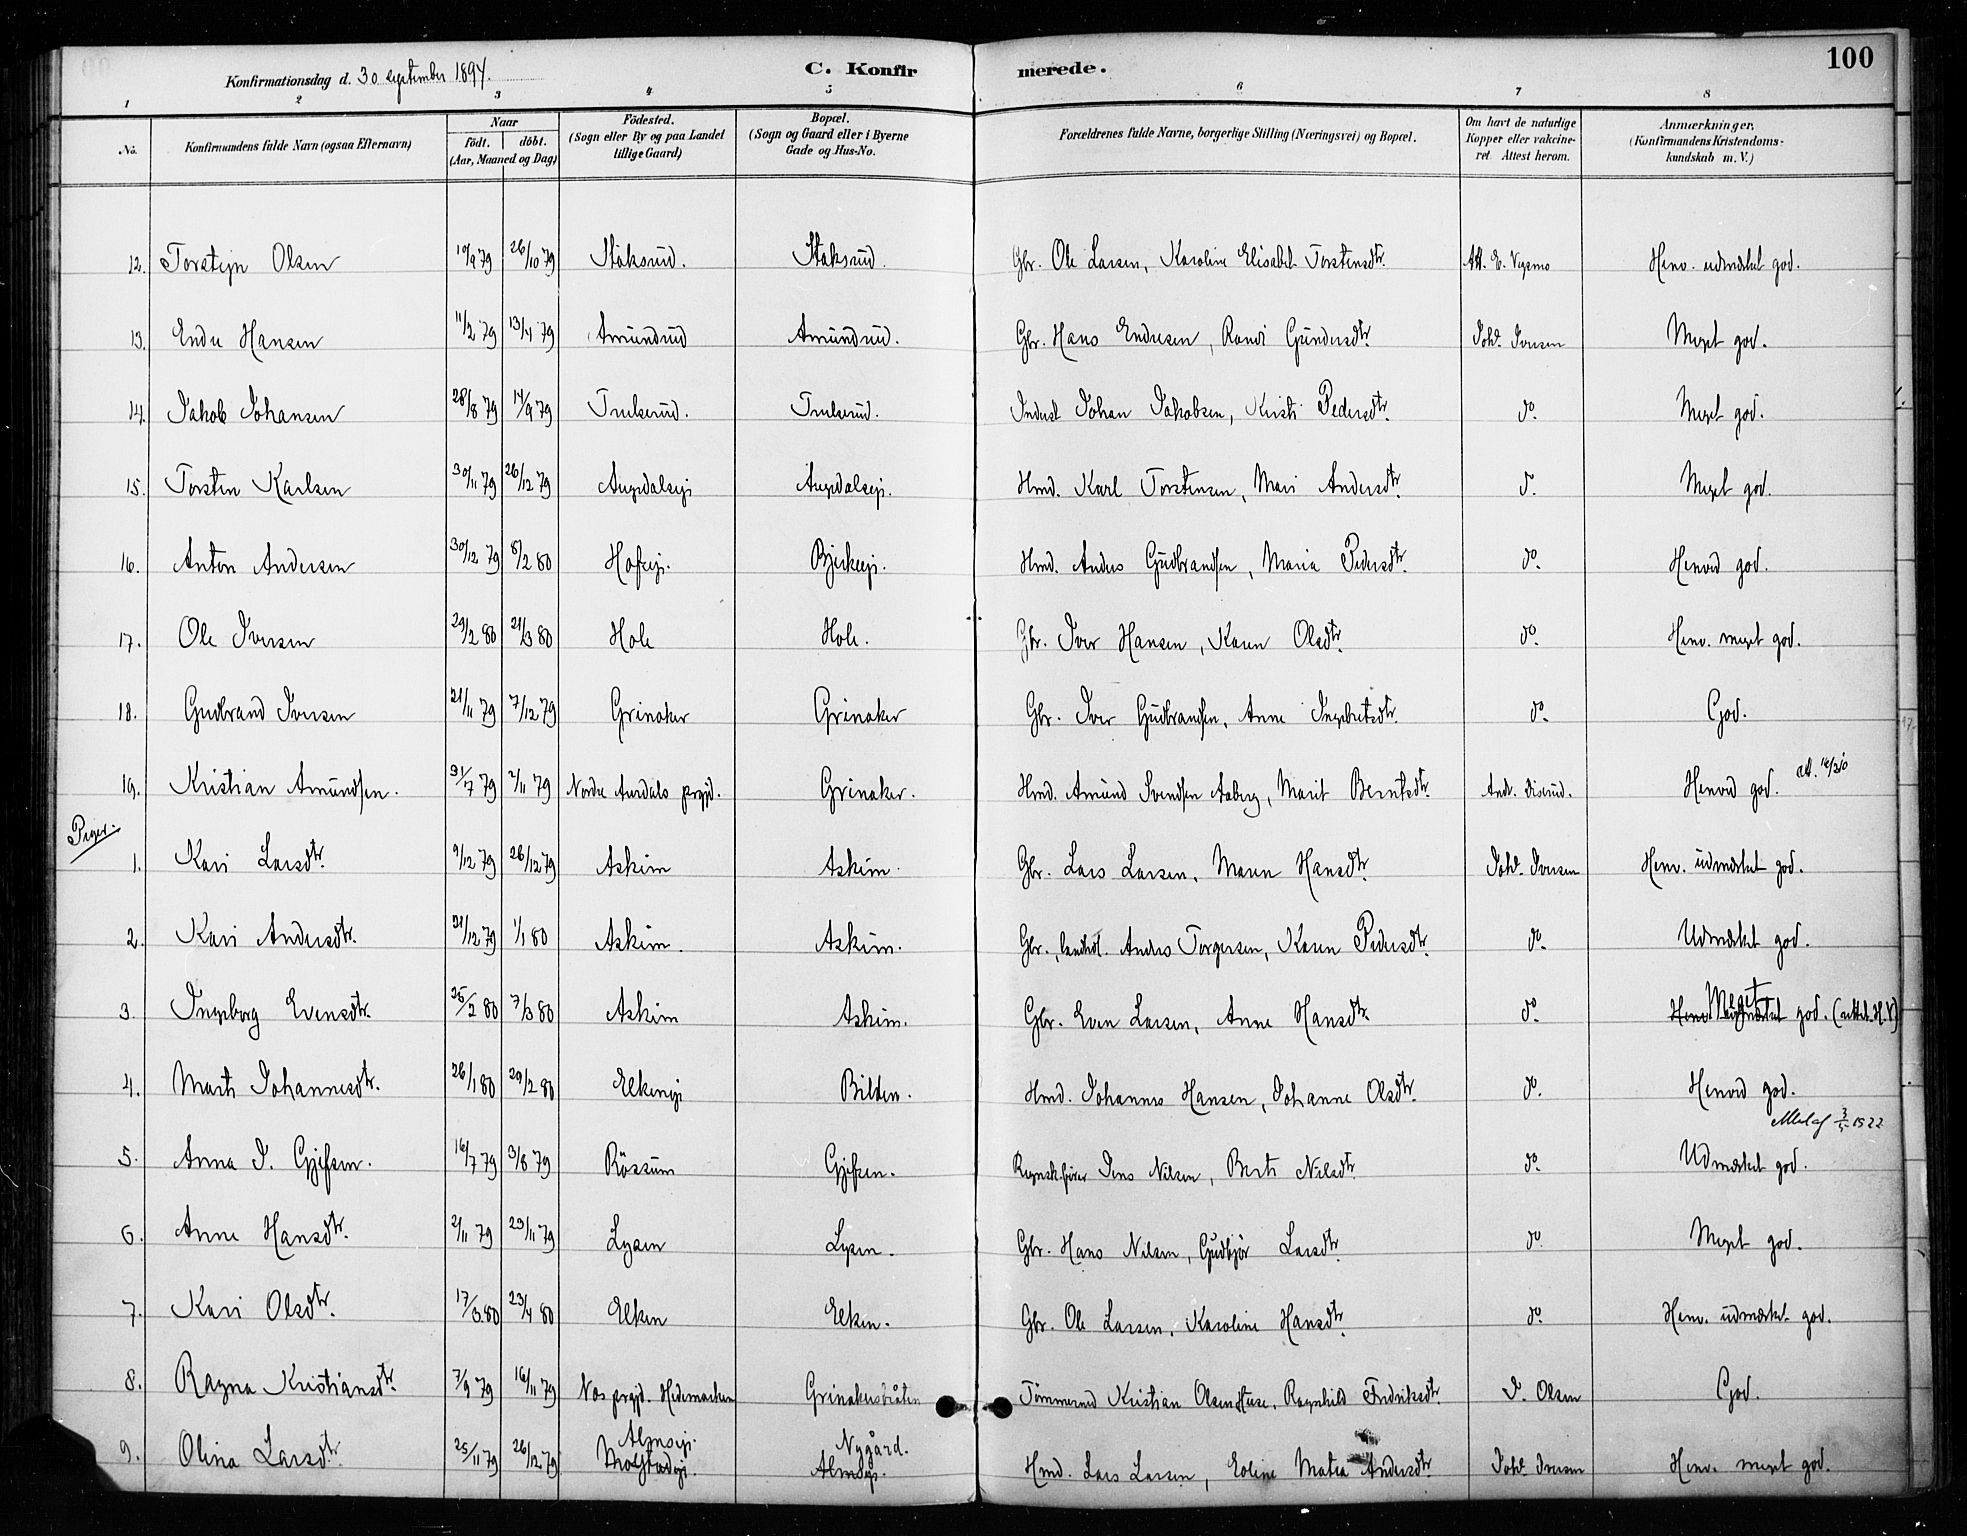 100
Konfirmationsdag d. 30 september 1894.
C. Konfirmerede.
1 2 3 4 5 6 7 8
No. Konfirmandens fulde Navn (ogsaa Efternavn) Naar födt. döbt. (Aar, Maaned og Dag) Födested. (Sogn eller By og paa Landet tillige Gaard) Bopæl. (Sogn og Gaard eller i Byerne Gade og Hus-No. Forældrenes fulde Navne, borgerlige Stilling (Næringsvei) og Bopæl. Om havt de naturlige Kopper eller vakcineret. Attest herom. Anmærkninger. (Konfirmandens Kristendomskundskab m. V.)
12. Torstejn Olsen 10/9 79 26/10 79 Staksrud. Staksrud. Gbr. Ole Larsen, Karoline Elisabet Torstensdtr. Att. E. Vegsmo Henv. udmærket god.
13. Endre Hansen 11/2 79 13/4 79 Amundrud Amundrud. Gbr. Hans Endresen, Randi Gundersdtr. Johs. Iversen Meget god.
14. Jakob Johansen 28/8 79 14/9 79 Trulserud. Trulserud. Inderst Johan Jakobsen, Kristi Pedersdtr. do. Meget god.
15. Torsten Karlsen 30/11 79 26/12 79 Augedalsej. Augedalsej. Hmd. Karl Torstensen, Mari Andersdtr. do. Meget god.
16. Anton Andersen 30/12 79 8/2 80 Hofsej. Bjerkeej. Hmd. Anders Gudbrandsen, Maria Pedersdtr. do. Henved god.
17. Ole Iversen 29/2 80 21/3 80 Hole Hole. Gbr. Iver Hansen, Karen Olsdtr. do. Henv. meget god.
18. Gudbrand Iversen 21/11 79 7/12 79 Grinaker Grinaker Gbr. Iver Gudbrandsen, Anne Ingebretsdtr. do. God.
19. Kristian Amundsen. 31/7 79 2/11 79 Nordre Aurdals prgjd. Grinaker. Hmd. Amund Svendsen Aaberg, Marit Berntsdtr. Andr. Diserud. Henved god.
Piger.
1. Kari Larsdtr. 9/12 79 26/12 79 Askim Askim. Gbr. Lars Larsen, Maren Hansdtr. Johs. Iversen Henv. udmærket god.
2. Kari Andersdtr. 21/12 79 1/1 80 Askim. Askim. Gbr., landhdl. Anders Torgersen, Karen Pedersdtr. do. Udmærket god.
3. Ingeborg Evensdtr. 25/2 80 7/3 80 Askim Askim. Gbr. Even Larsen, Anne Hansdtr. do. Meget god. (rettet. H.V)
4. Marte Johannesdtr. 26/1 80 29/2 80 Elkenej Bilden. Hmd. Johannes Hansen, Johanne Olsdtr. do. Henved god.
5. Anna J. Gjefsen. 16/7 79 3/8 79 Røssum Gjefsen. Regnsk.fører Jens Nilsen, Berte Nilsdtr. do. Udmærket god.
6. Anne Hansdtr. 2/11 79 23/11 79 Lysen Lysen. Gbr. Hans Nilsen, Gudbjør Larsdtr do. Meget god.
7. Kari Olsdtr. 17/3 80 23/4 80 Elken Elken. Gbr. Ole Larsen, Karoline Hansdtr. do. Henv. udmærket god.
8. Ragna Kristiansdtr. 7/9 79 16/11 79 Nes prgjd. Hedemarken Grinakersbråten Tømmermd Kristian Olsen Huse, Ragnhild Fredriksdtr. J. Olsen God.
9. Olina Larsdtr. 25/11 79 26/12 79 Almsej. Nygård. Almsej. Hmd. Lars Larsen, Eoline Matea Andersdtr. Johs. Iversen Henv. meget god.